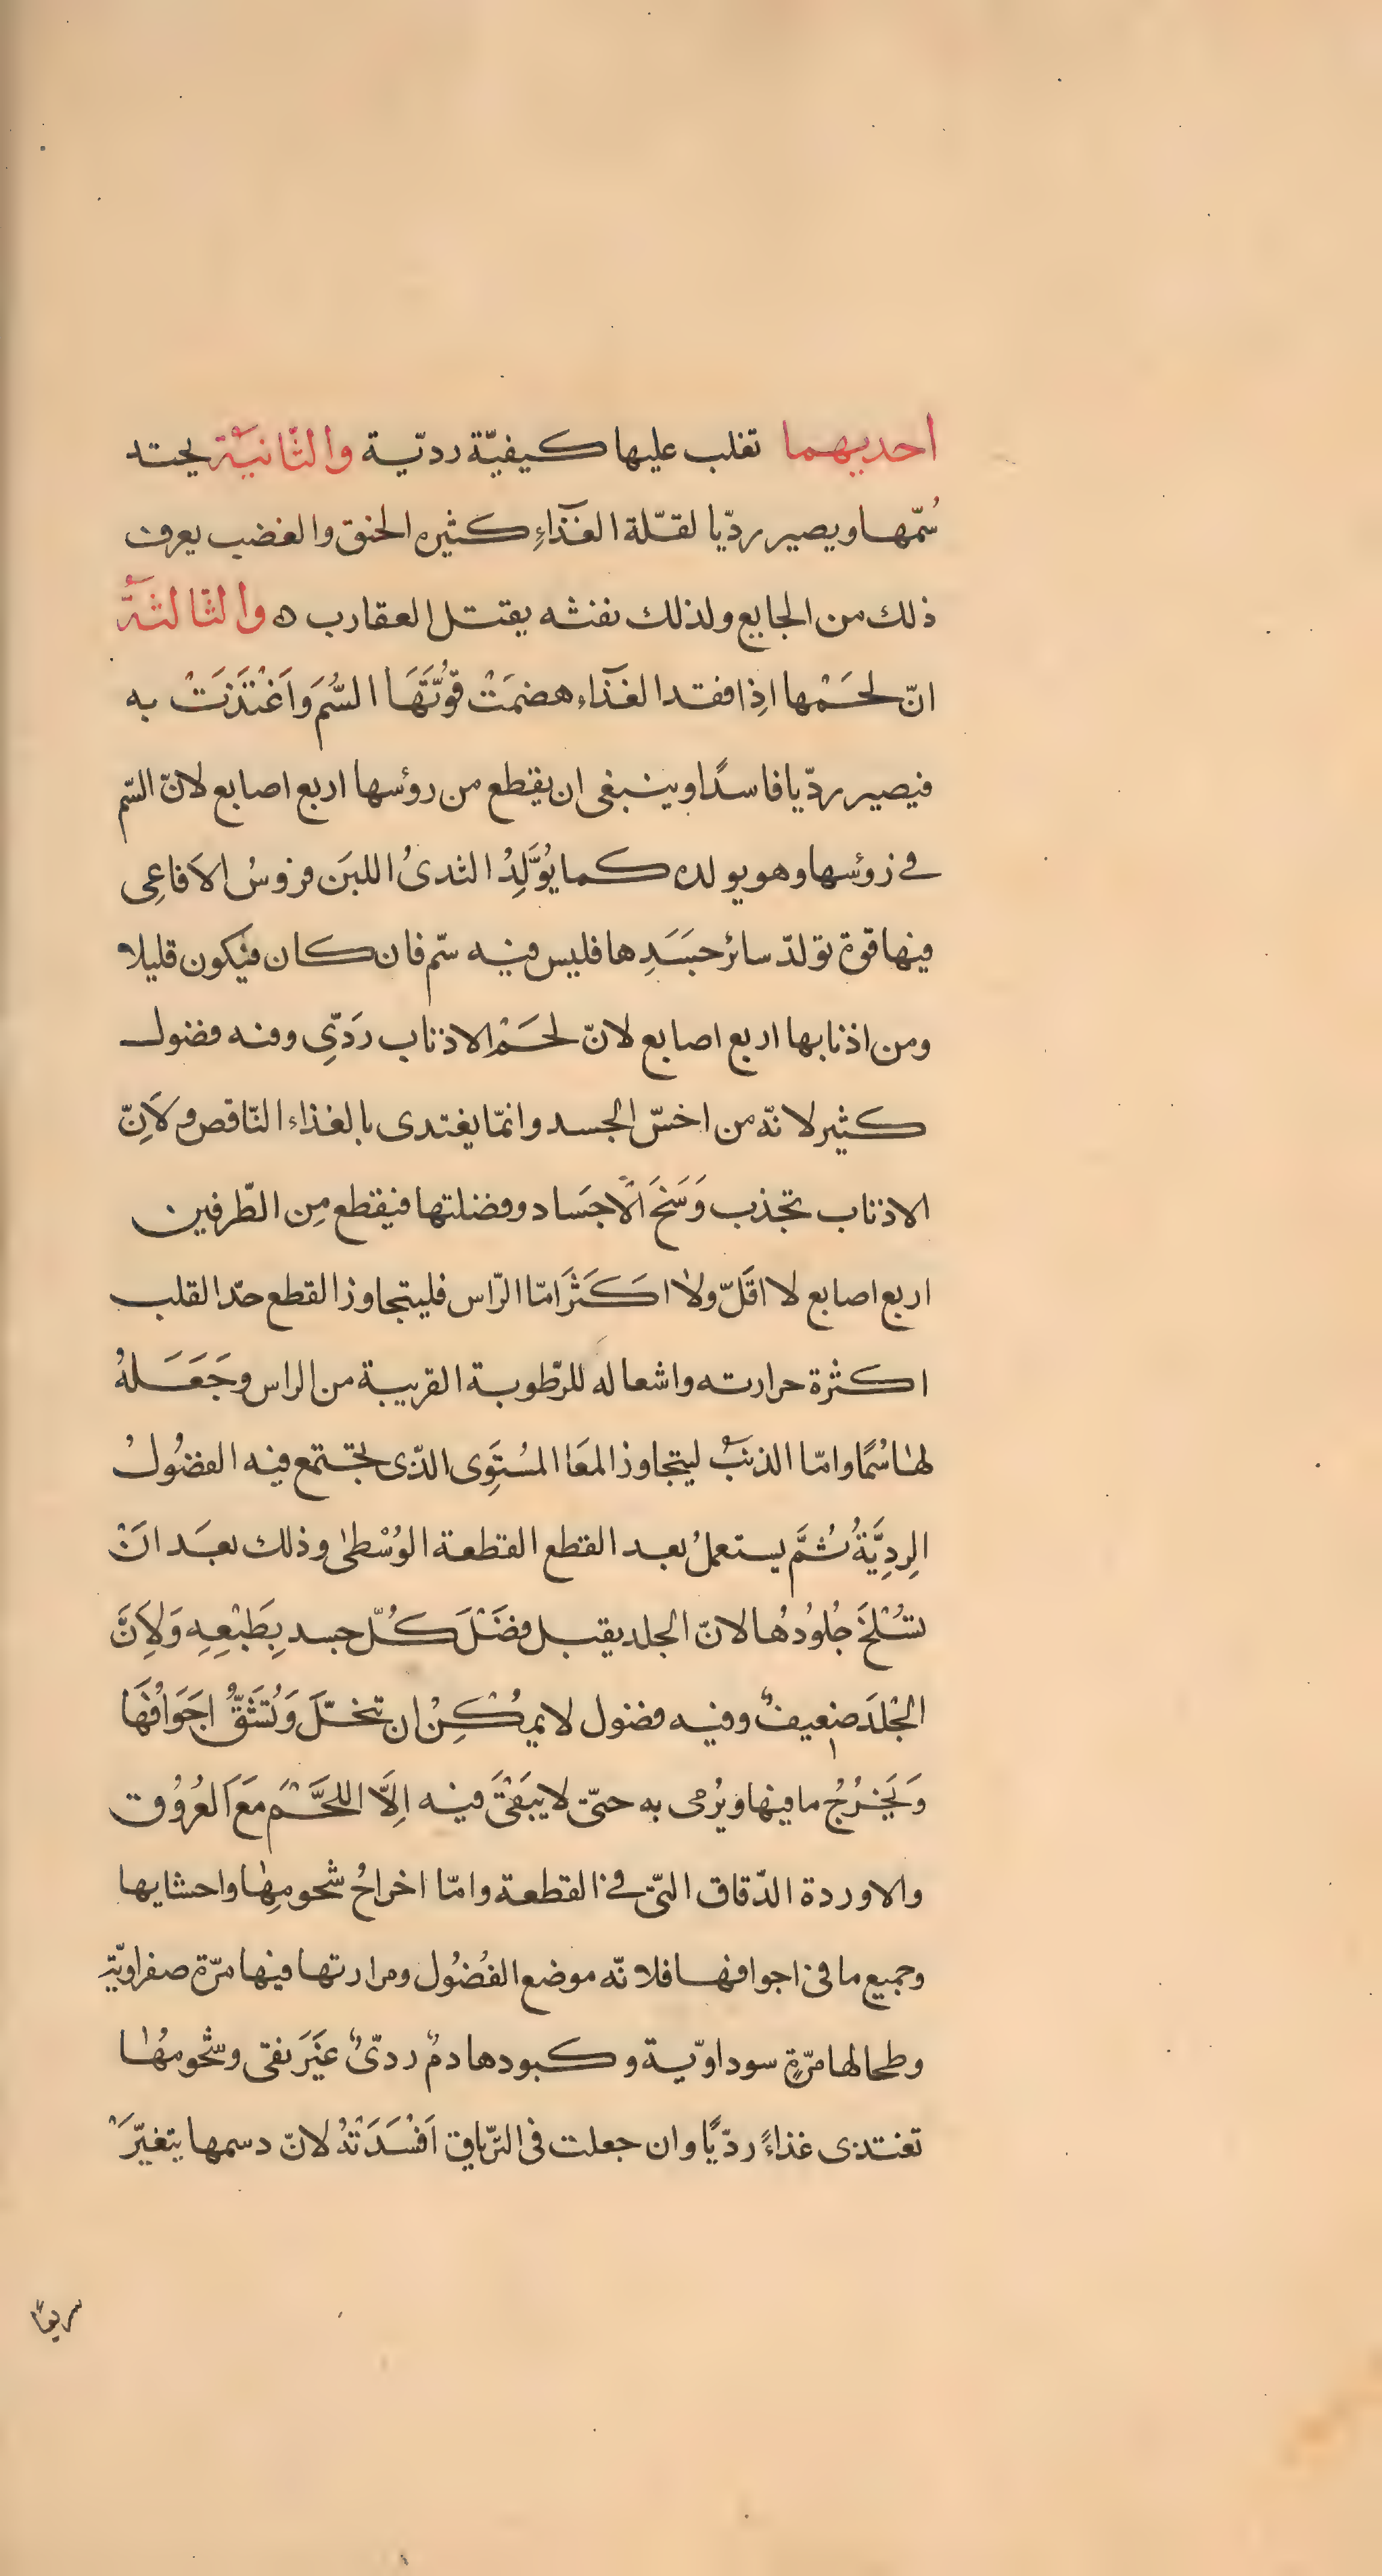 احديهما تغلب عليها كيفيّة رديّة والثّانية يحتد
سُمّها ويصير رديّا لقلّة الغذاءِ كثيره الحنق والغضب يعرف
ذلك من الجايع ولذلك نفثه يقتل العقارب ه والثّالثة
انّ لحمْها اذِا فقد الغذاء هضمَتْ قوّتُهَا السُّمَ واَغْتَذَتْ به
فيصير رديّا فاسدًا وينبغى ان يقطع من روُسها اربع اصابع لانّ السّم
في رؤسها وهو يولده كما يُوَّلِدُ الثدىُ اللبَن فروسُ الاَفاعِى
فيها قوة تولدّ سائر جسَدِها فليس فيه سّم فان كان فيكون قليلا
ومن اذنابها اربع اصابع لانّ لحمْ الاذناب رَدّىِ وفيه فضول
كثير لانّه من اخسّ الجسد وانمّا يغتدى بالغذاء النّاقص ولاَنِّ
الاذناب تجذب وَسَخَ الاجسَاد وفضلتها فيقطع مِن الطّرفين
اربع اصابع لا اقَلّ ولا اكَثَر امّا الرّاس فليتجاوز القطع حدّ القلب
اكثرة حرارته واشعاله للرّطوبة القريبة من الراس وجَعَلهُ
لها سُمًا وامّا الذنبُ ليتجاوز المعَا المسُتَوِى الذّى يجتمع فيه الفضُولُ
الِردِيَّةُ ثُمَّ يستعملُ بعد القطع القطعة الوُسْطىٰ وذلك بعَد انَْ
تسُْلخَ جُلوُدُها لانّ الجلد يقبل فضَْلَ كُلّ جسد بِطَبْعِهِ وَلاِنَّ
الجْلدَ ضعيفٌ وفيه فضول لا يمُكْنِ ان تخلّ وَتُشَقُّ اجَوَافُهَا
وَيَخرُجُ ما فيها ويُرمى به حتىّ لا يبَقْىَ فيه اِلاَّ اللحَّمْ مَعَ العُرُوُق
والاوردة الدّقاق التىّ في القطعة وامّا اخراحُ شحومِها واحشايها
وجميع ما فى اجوافها فلانّه موضع الفُضُول ومرارتها فيها مرّة صفراويّة
وطحالها مرّةٍ سوداويّة وكبودها دمٌ ردىٌّ غيَرَ نقى وشحومهُا
تغتذى غذاءً رديًّا وان جعلت فى الترّياق اَفسْدَتْهُ لانّ دسمها يتغيّرَ
سريعًا